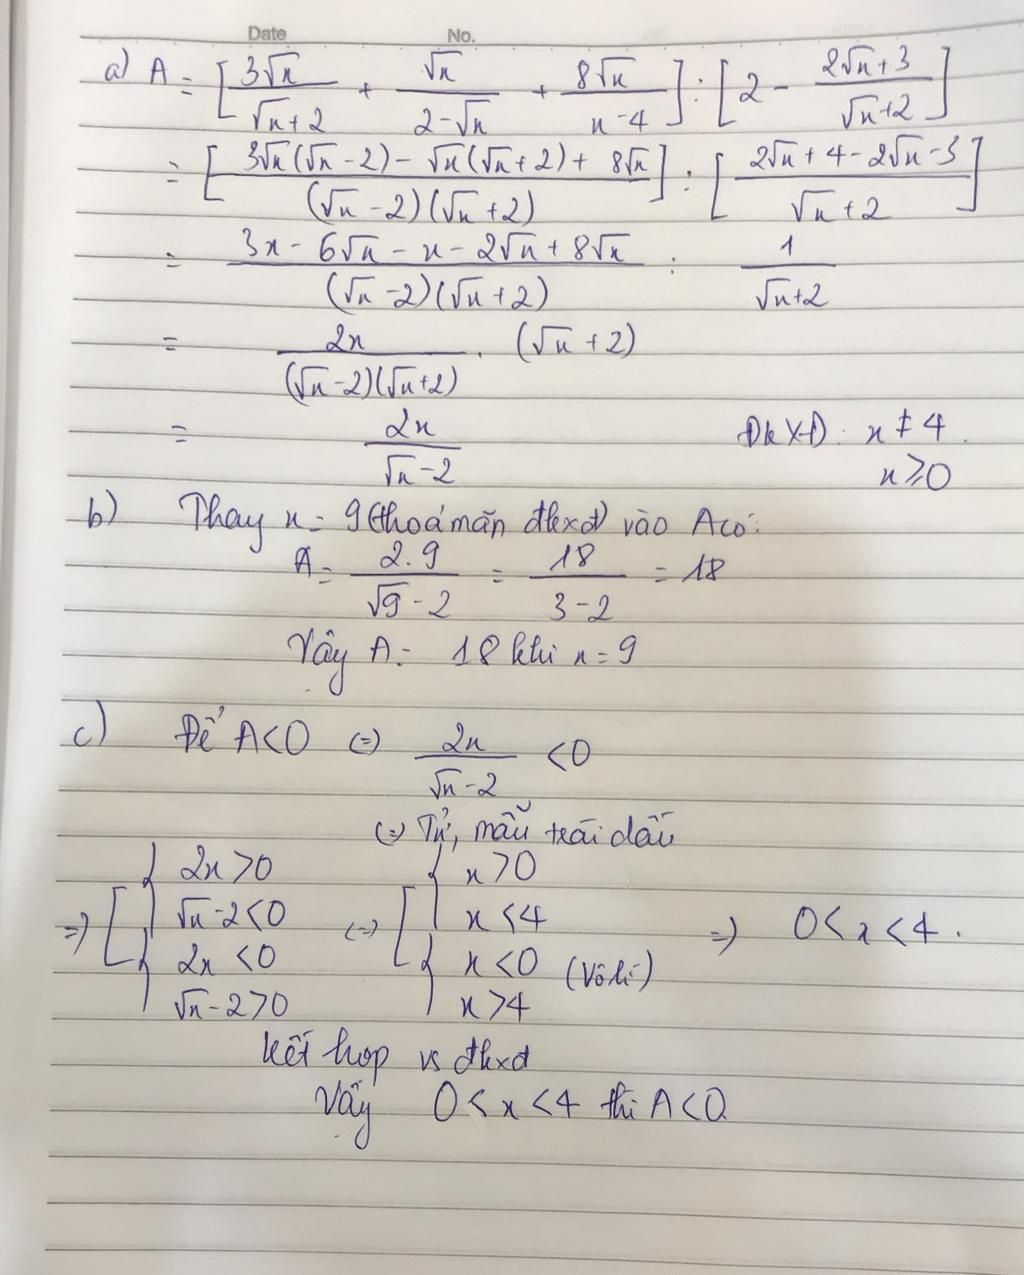 Date No.
a) A = [3√x/(√x+2) + √x/(2-√x) + 8√x/(x-4)] : [2 - (2√x+3)/(√x+2)]
= [(3√x(√x-2) - √x(√x+2) + 8√x)/((√x-2)(√x+2))] : [(2√x+4-2√x-3)/(√x+2)]
= (3x - 6√x - x - 2√x + 8√x)/((√x-2)(√x+2)) : 1/(√x+2)
= 2x/((√x-2)(√x+2)) . (√x+2)
= 2x/(√x-2) ĐkXĐ: x ≠ 4.
x ≥ 0
b) Thay x = 9 (thoả mãn đkxđ) vào A có:
A = 2.9/(√9-2) = 18/(3-2) = 18
Vậy A = 18 khi x = 9
c) Để A<0 (=) 2x/(√x-2) <0
(=) Tử, mẫu trái dấu
=) [ { 2x >0 (=) [ { x >0
√x-2<0 x <4 =) 0< x <4.
{ 2x <0 { x <0 (vô lí)
√x-2>0 x >4
Kết hợp vs đkxđ
Vậy 0< x <4 thì A<0